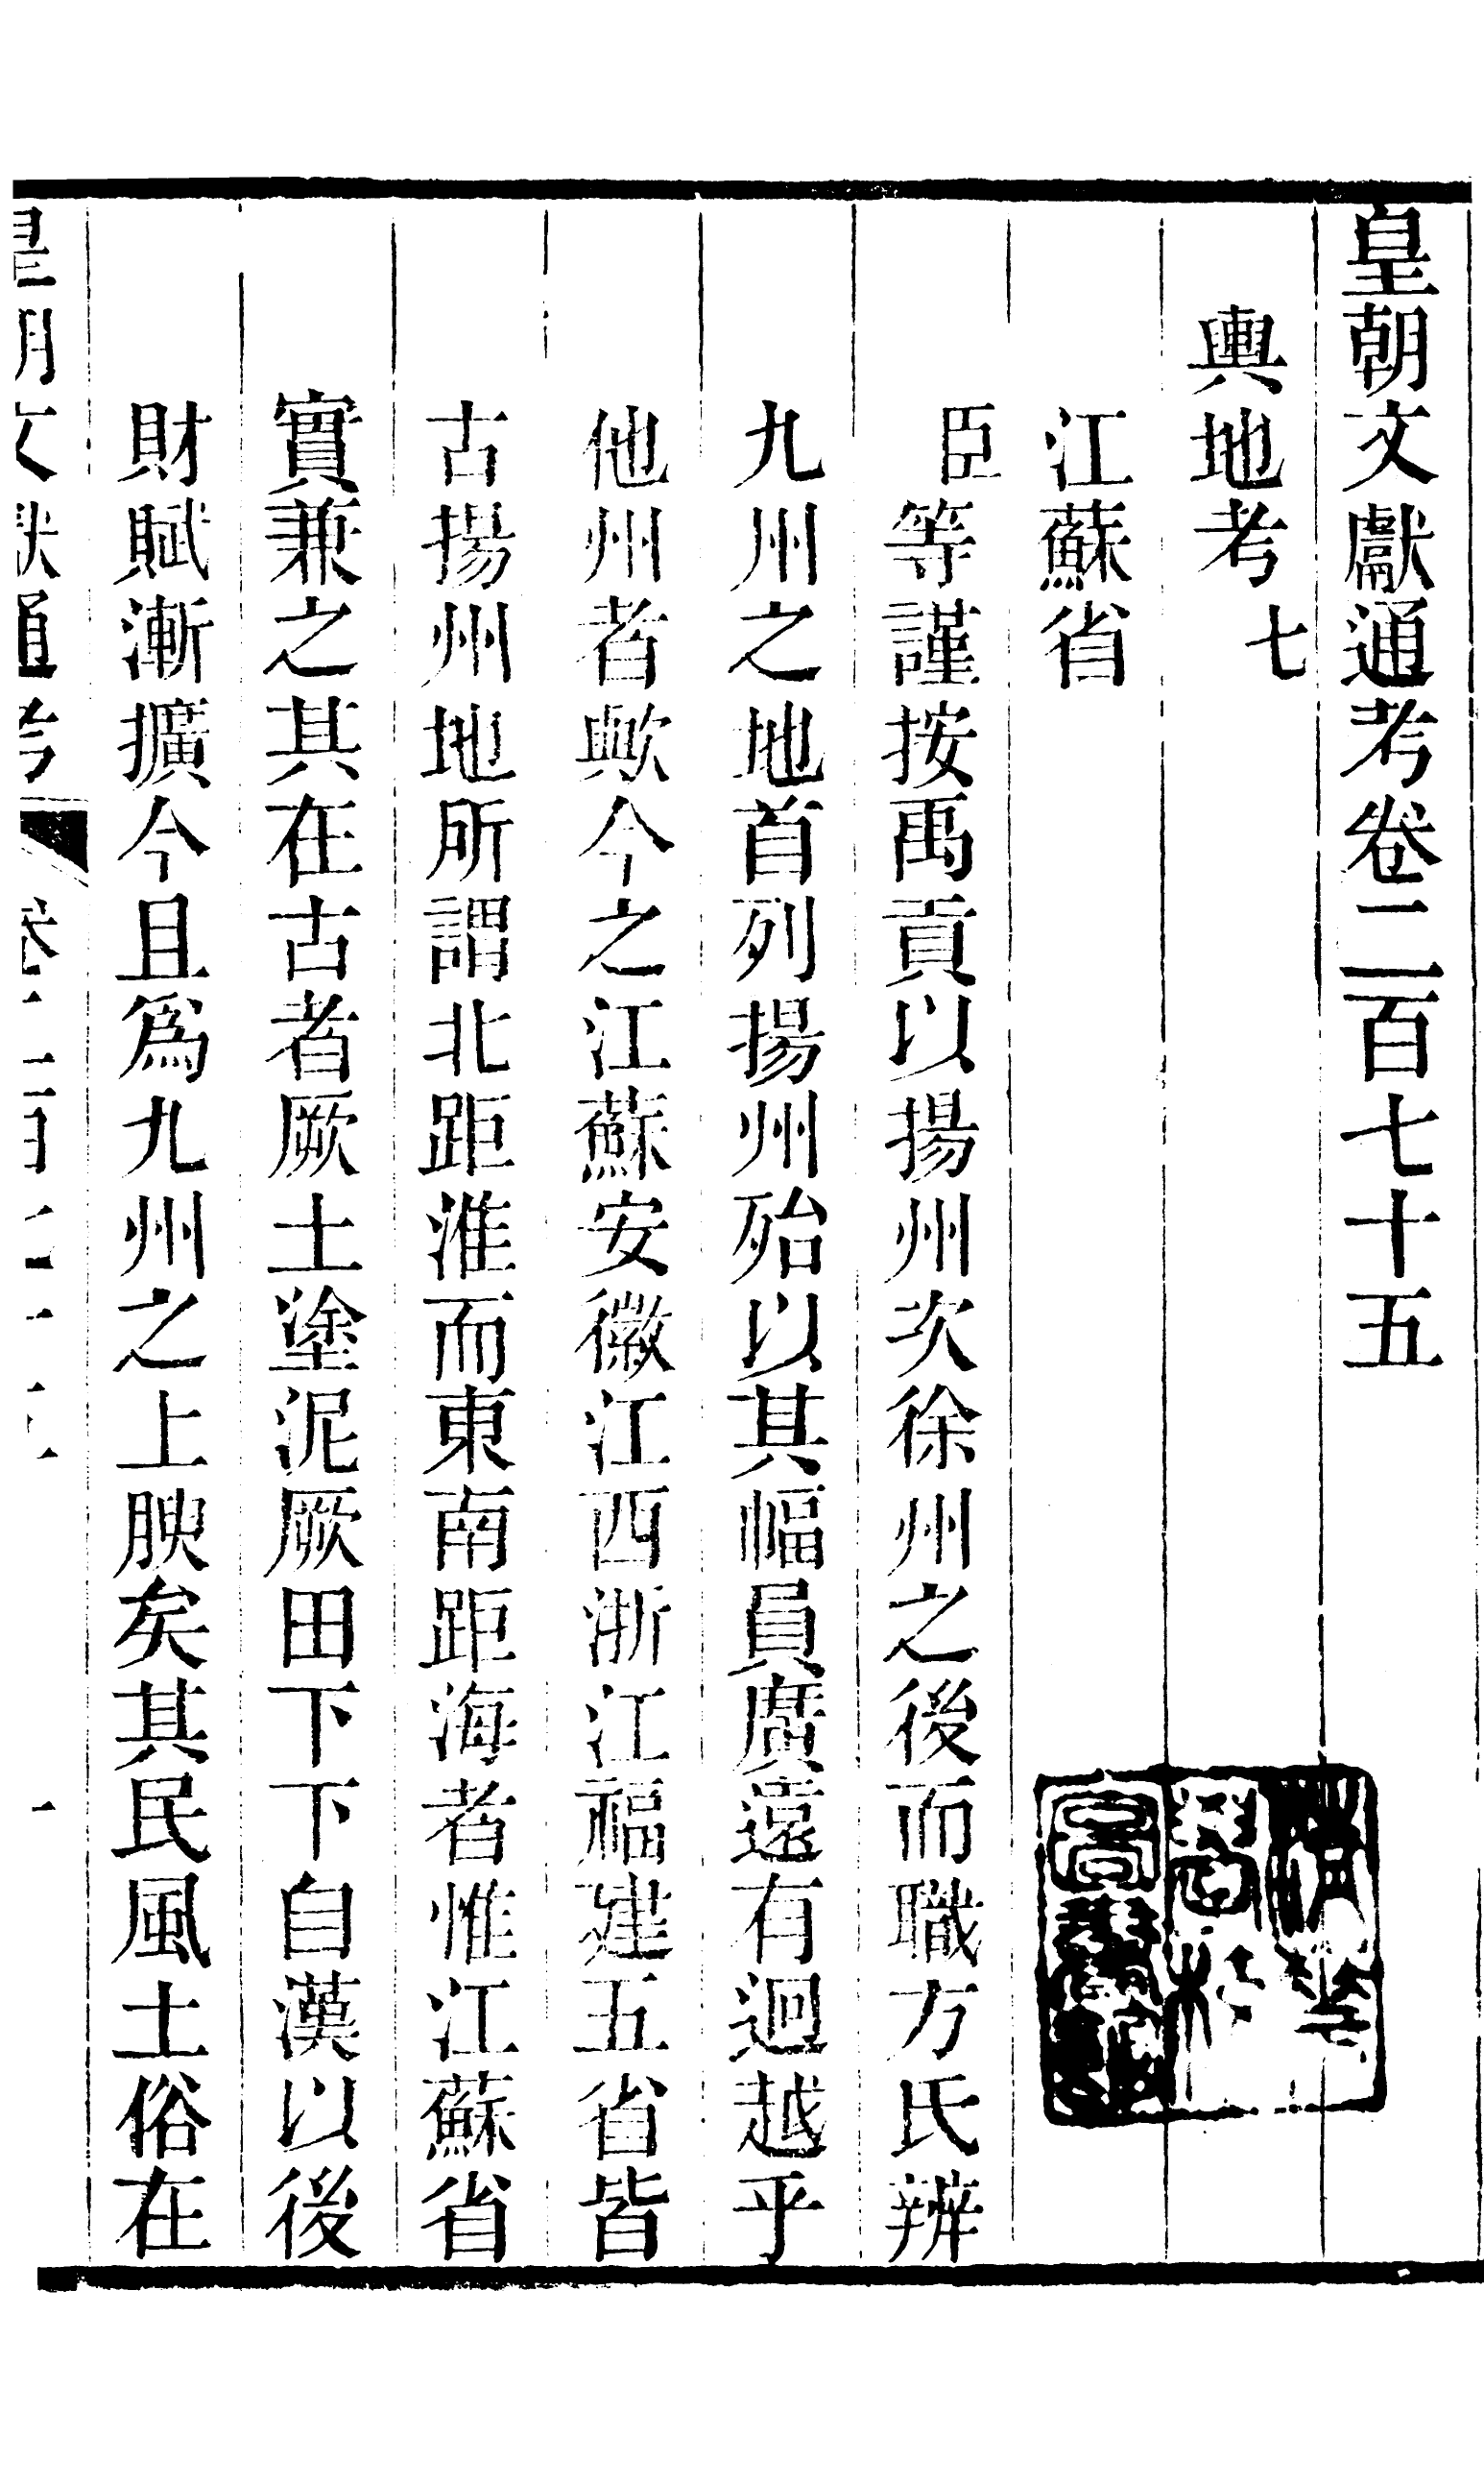 皇朝文獻通考卷二百七十五
輿地考七
江蘇省
臣等謹按禹貢以揚州次徐州之後而職方氏辨
九州之地首列揚州殆以其幅員廣遠有迥越乎
他州者歟今之江蘇安徽江西浙江福建五省皆
古揚州地所謂北距淮而東南距海者惟江蘇省
實兼之其在古者厥土塗泥厥田下下自漢以後
財賦漸擴今且爲九州之上腴矣其民風土俗在